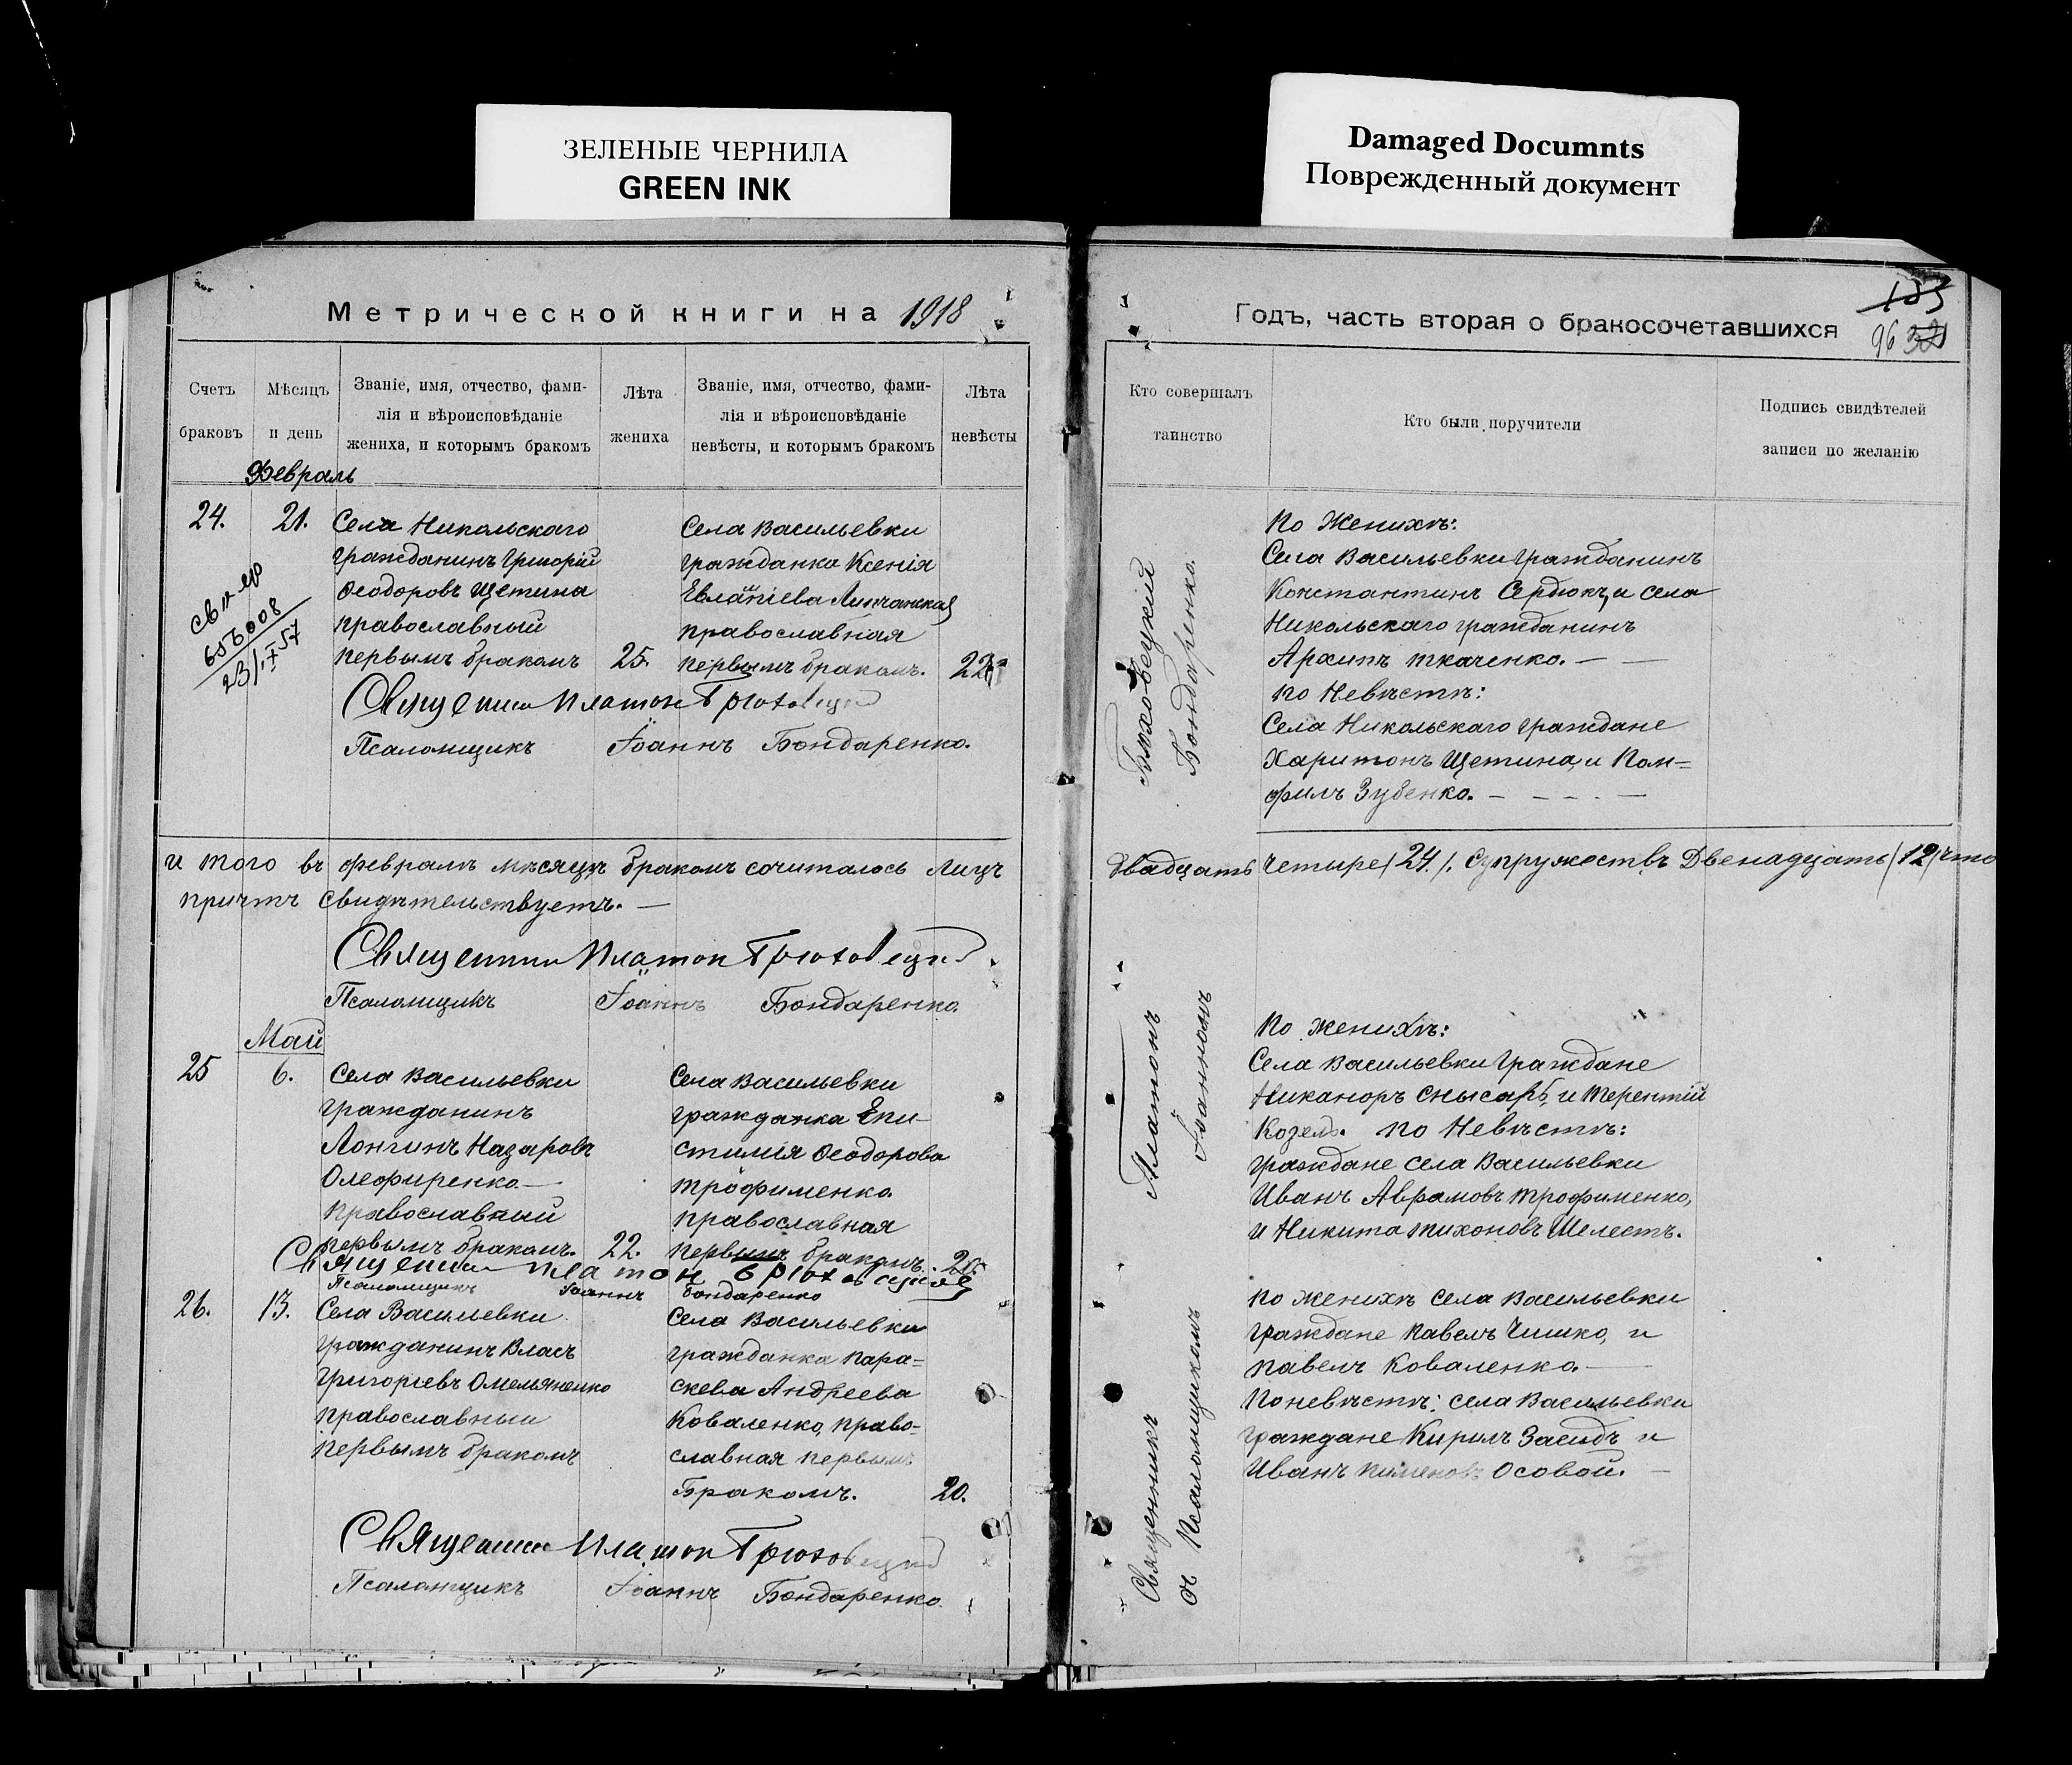 ЗЕЛЕНЫЕ ЧЕРНИЛА
GREEN INK
Damaged Documnts
Поврежденный документ
Метрической книги на 1918
Счетъ браковъ
Мѣсяцъ и день
Званіе, имя, отчество, фами-
лія и вѣроисповѣданіе
жениха, и которымъ бракомъ
Лѣта жениха
Званіе, имя, отчество, фами-
лія и вѣроисповѣданіе
невѣсты, и которымъ бракомъ
Лѣта невѣсты
Февраль
24. 21.
Села Никольскаго
гражданинъ Григорій
Ѳеодоровъ Щетина
православный
первымъ бракомъ 25.
Села Васильевки
гражданка Ксенія
православная
первымъ бракомъ.
656008
Священник Платон Брюховецкий
Псаломщикъ Іоаннъ Бондаренко.
и того въ февралѣ мѣсяцѣ бракомъ сочиталось лицъ
причтъ свидѣтельствуетъ.
Священник Платон Брюховецкий
Псаломщикъ Іоаннъ Бондаренко.
Май
25 6.
Села Васильевки
гражданинъ
Лонгинъ Назаровъ
Олефиренко
православный
первымъ бракомъ. 22.
Села Васильевки
гражданка Епи-
стимія Ѳеодорова
Трофименко
православная
первымъ бракомъ.
Священник Платон Брюховецкий
Псаломщикъ Іоаннъ Бондаренко
26. 13.
Села Васильевки
гражданинъ Власъ
Григоріевъ Омельяненко
православный
первымъ бракомъ
Села Васильевки
гражданка Пара-
скева Андреева
Коваленко, право-
славная первымъ
Бракомъ. 20.
Священник Платон Брюховецкий
Псаломщикъ Іоаннъ Бондаренко.
Годъ, часть вторая о бракосочетавшихся
96
Кто совершалъ таинство
Кто были поручители
Подпись свидѣтелей
записи по желанію
По Женихѣ:
Села Васильевки гражданинъ
Константинъ Сердюкъ, и села
Никольскаго гражданинъ
Архипъ Ткаченко.
По Невѣстѣ:
Села Никольскаго граждане
Харитонъ Щетина, и Пам-
филъ Зубенко.
двадцать четыре /24/. супружествъ Двенадцать /12/ что
По женихѣ:
Села Васильевки граждане
Никаноръ Снысарь, и Терентій
Козелъ. По Невѣстѣ:
граждане села Васильевки
Иванъ Аврамовъ Трофименко,
и Никита Тихоновъ Шелестъ.
По женихѣ села Васильевки
граждане Павелъ Чишко, и
Павелъ Коваленко.
По невѣстѣ: села Васильевки
граждане Кирилъ Засидъ и
Иванъ Пименовъ Осовой.
Священникъ Платонъ Брюховецкий
съ Псаломщикомъ Іоанномъ Бондаренко.